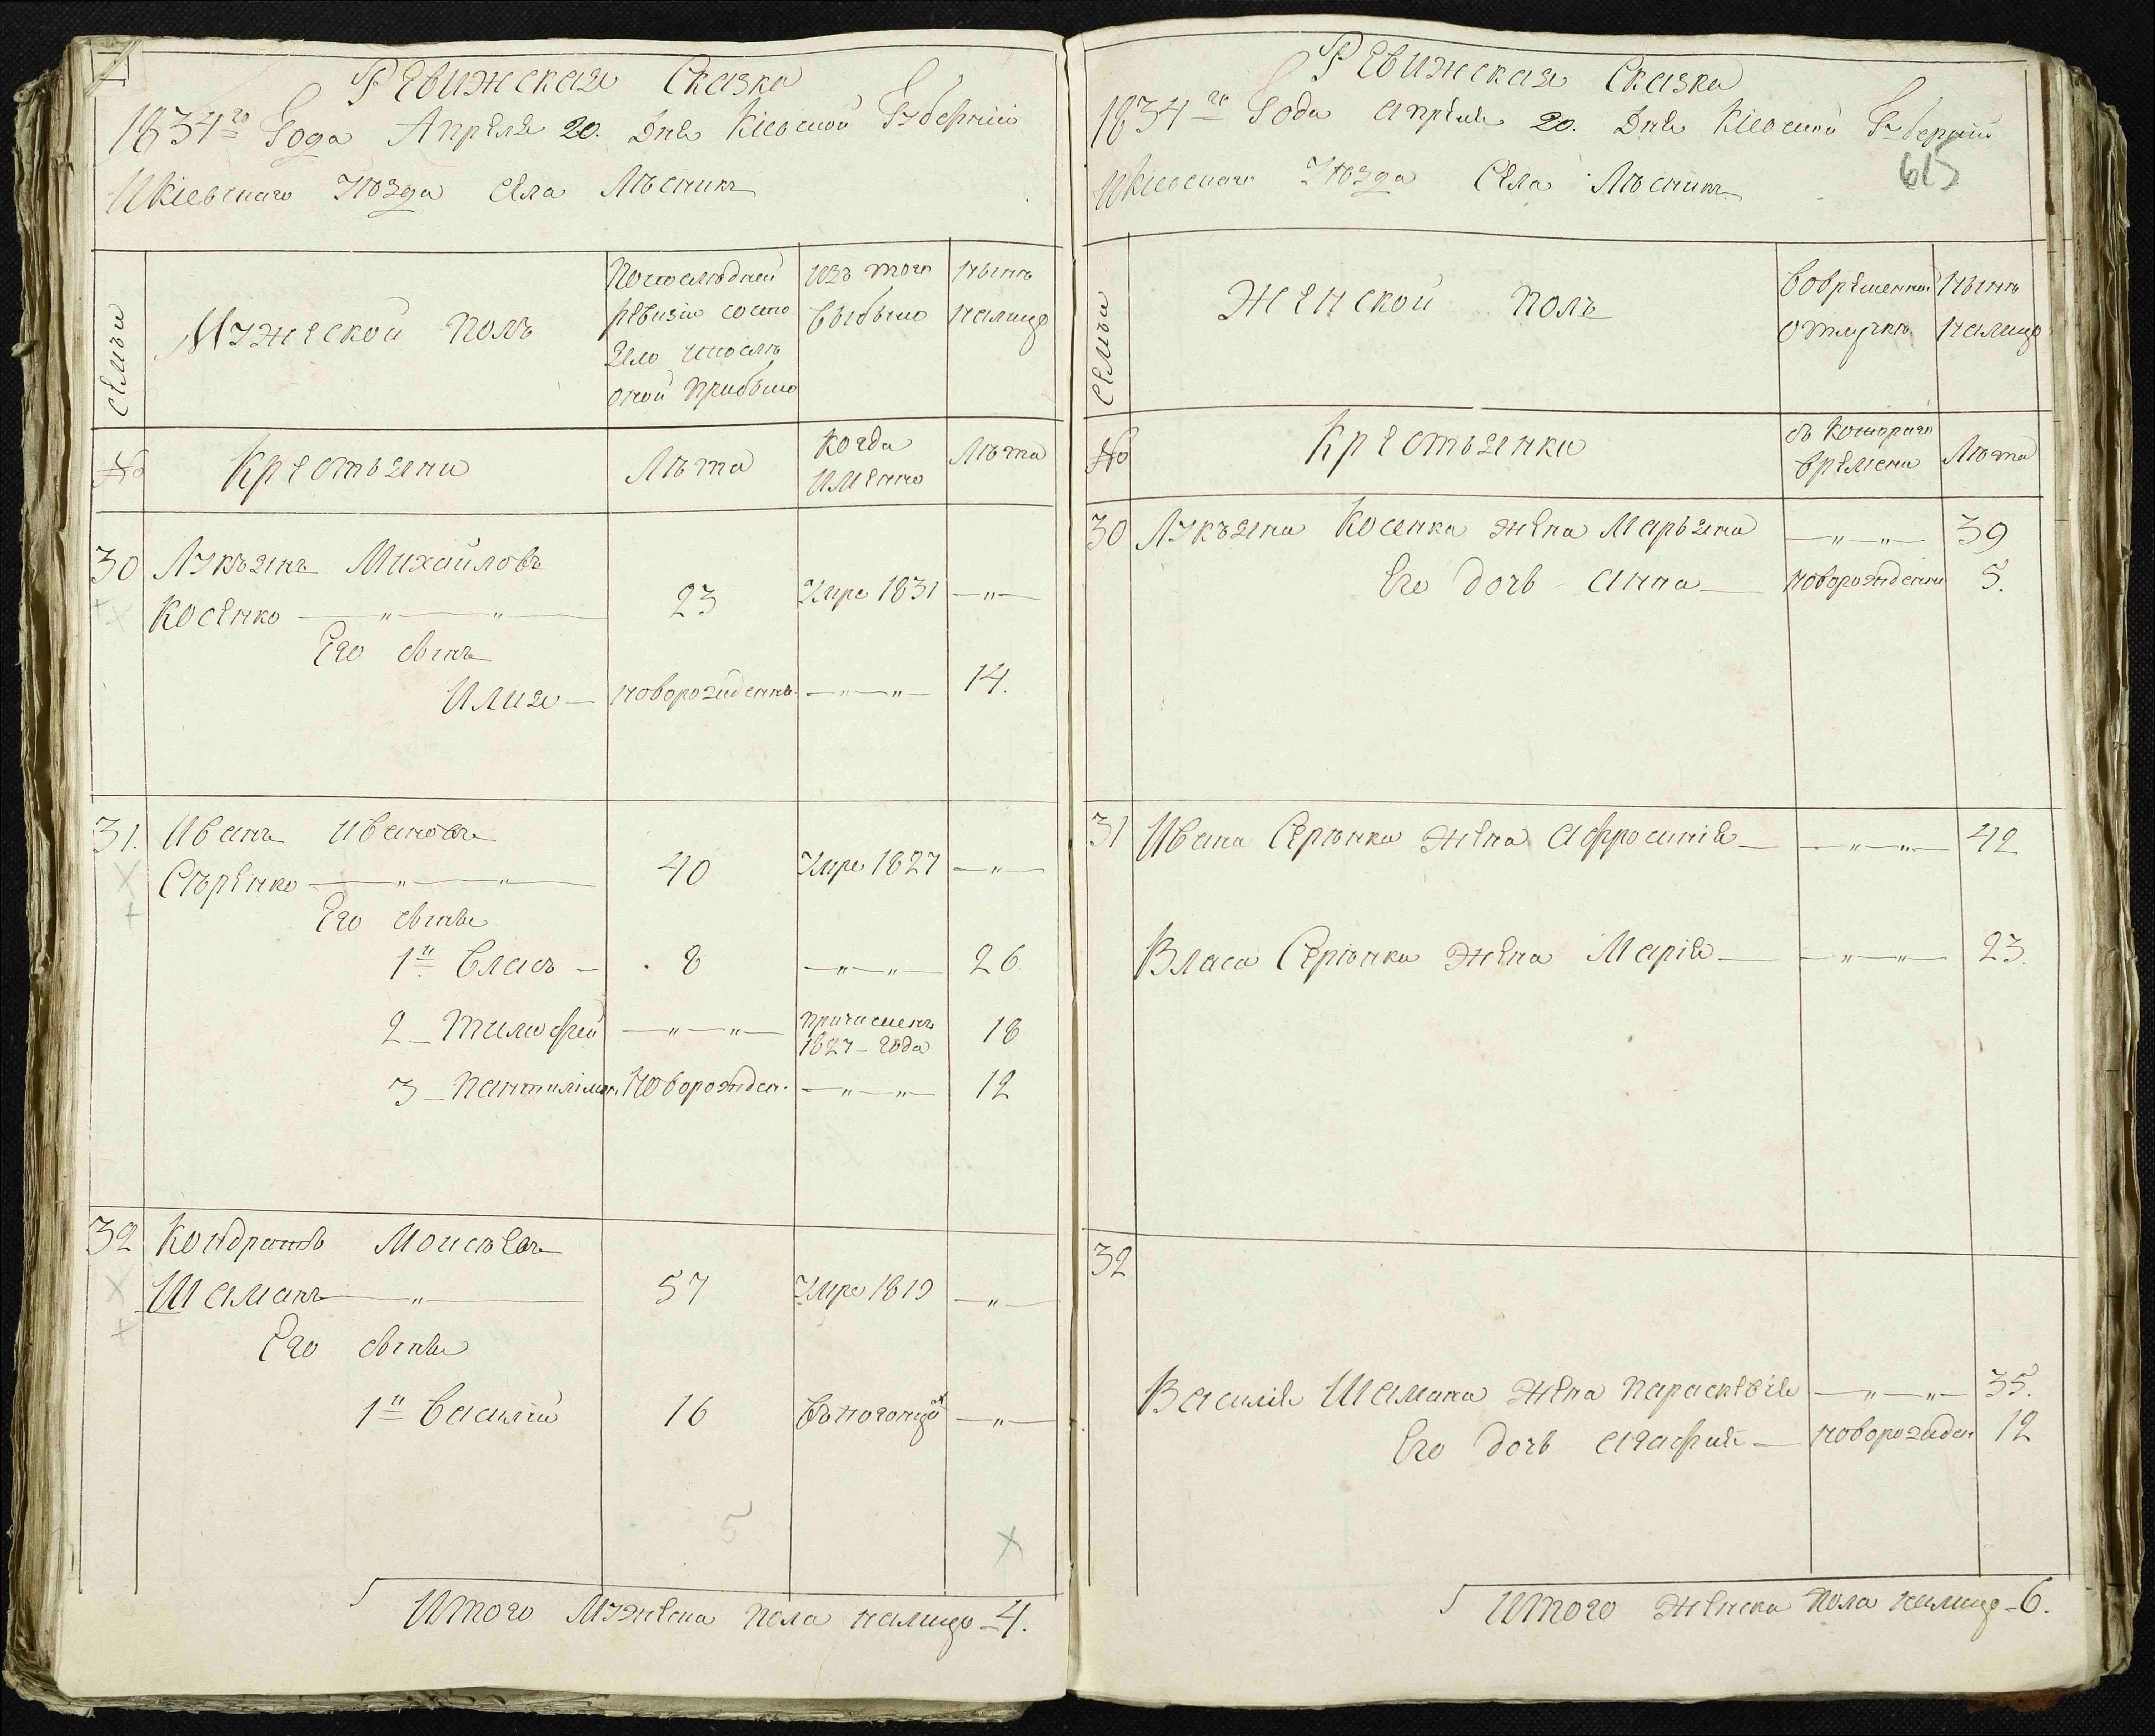 Ревижская Сказка
1834го Года Апреля 20. Дня Кіевской Губерніи
Икіевскаго Уѣзда Села Лѣсникъ
Семьи
Мужеской полъ
Попослѣдней
ревизіи состо
яло ипослѣ
оной прибыло
Изъ того
выбыло
Нынѣ
налицо
№
Крестьяни
Лѣта
Когда
именно
Лѣта
30 Лукъянъ Михайловъ
Косенко — " — " — 23 Умре 1831 — " —
Его сынъ
Илия — новорожденъ — " — " — 14.
31. Иванъ Ивановъ
Сѣренко — " — " — 40 Умре 1827 — " —
Его сыны
1й Власъ — 8 — " — " — 26
2 — Тимофей — " — " — причисленъ 1827 — года 18
3 — Пантилімон Новорожден. — " — " — 12
32 Кондратъ Моисѣевъ
Шаманъ — " — 57 Умре 1819 — " —
Его сыны
1й Василій 16 — " —
5
Итого Мужеска пола налицо — 4.
Ревижская Сказка
1834го Года Апреля 20. Дня Кіевской Губерніи
Икіевскаго Уѣзда Села Лѣсникъ
615
Семьи
Женской полъ
Вовременной
отлучкѣ
Нынѣ
налицо
№
Крестьянки
съ Котораго
времени
Лѣта
30 Лукъяна Косенка жена Марьяна — " — " — 39
Его дочь Анна — новорожденна 5.
31 Ивана Серѣнка жена Афросинія — " — " — 42
Власа Серѣнка жена Марія — " — " — 23.
32
Василія Шамана жена Параскевія — " — " — 35.
Его дочь Агафия — новорожден 12
Итого женска пола налицо — 6.